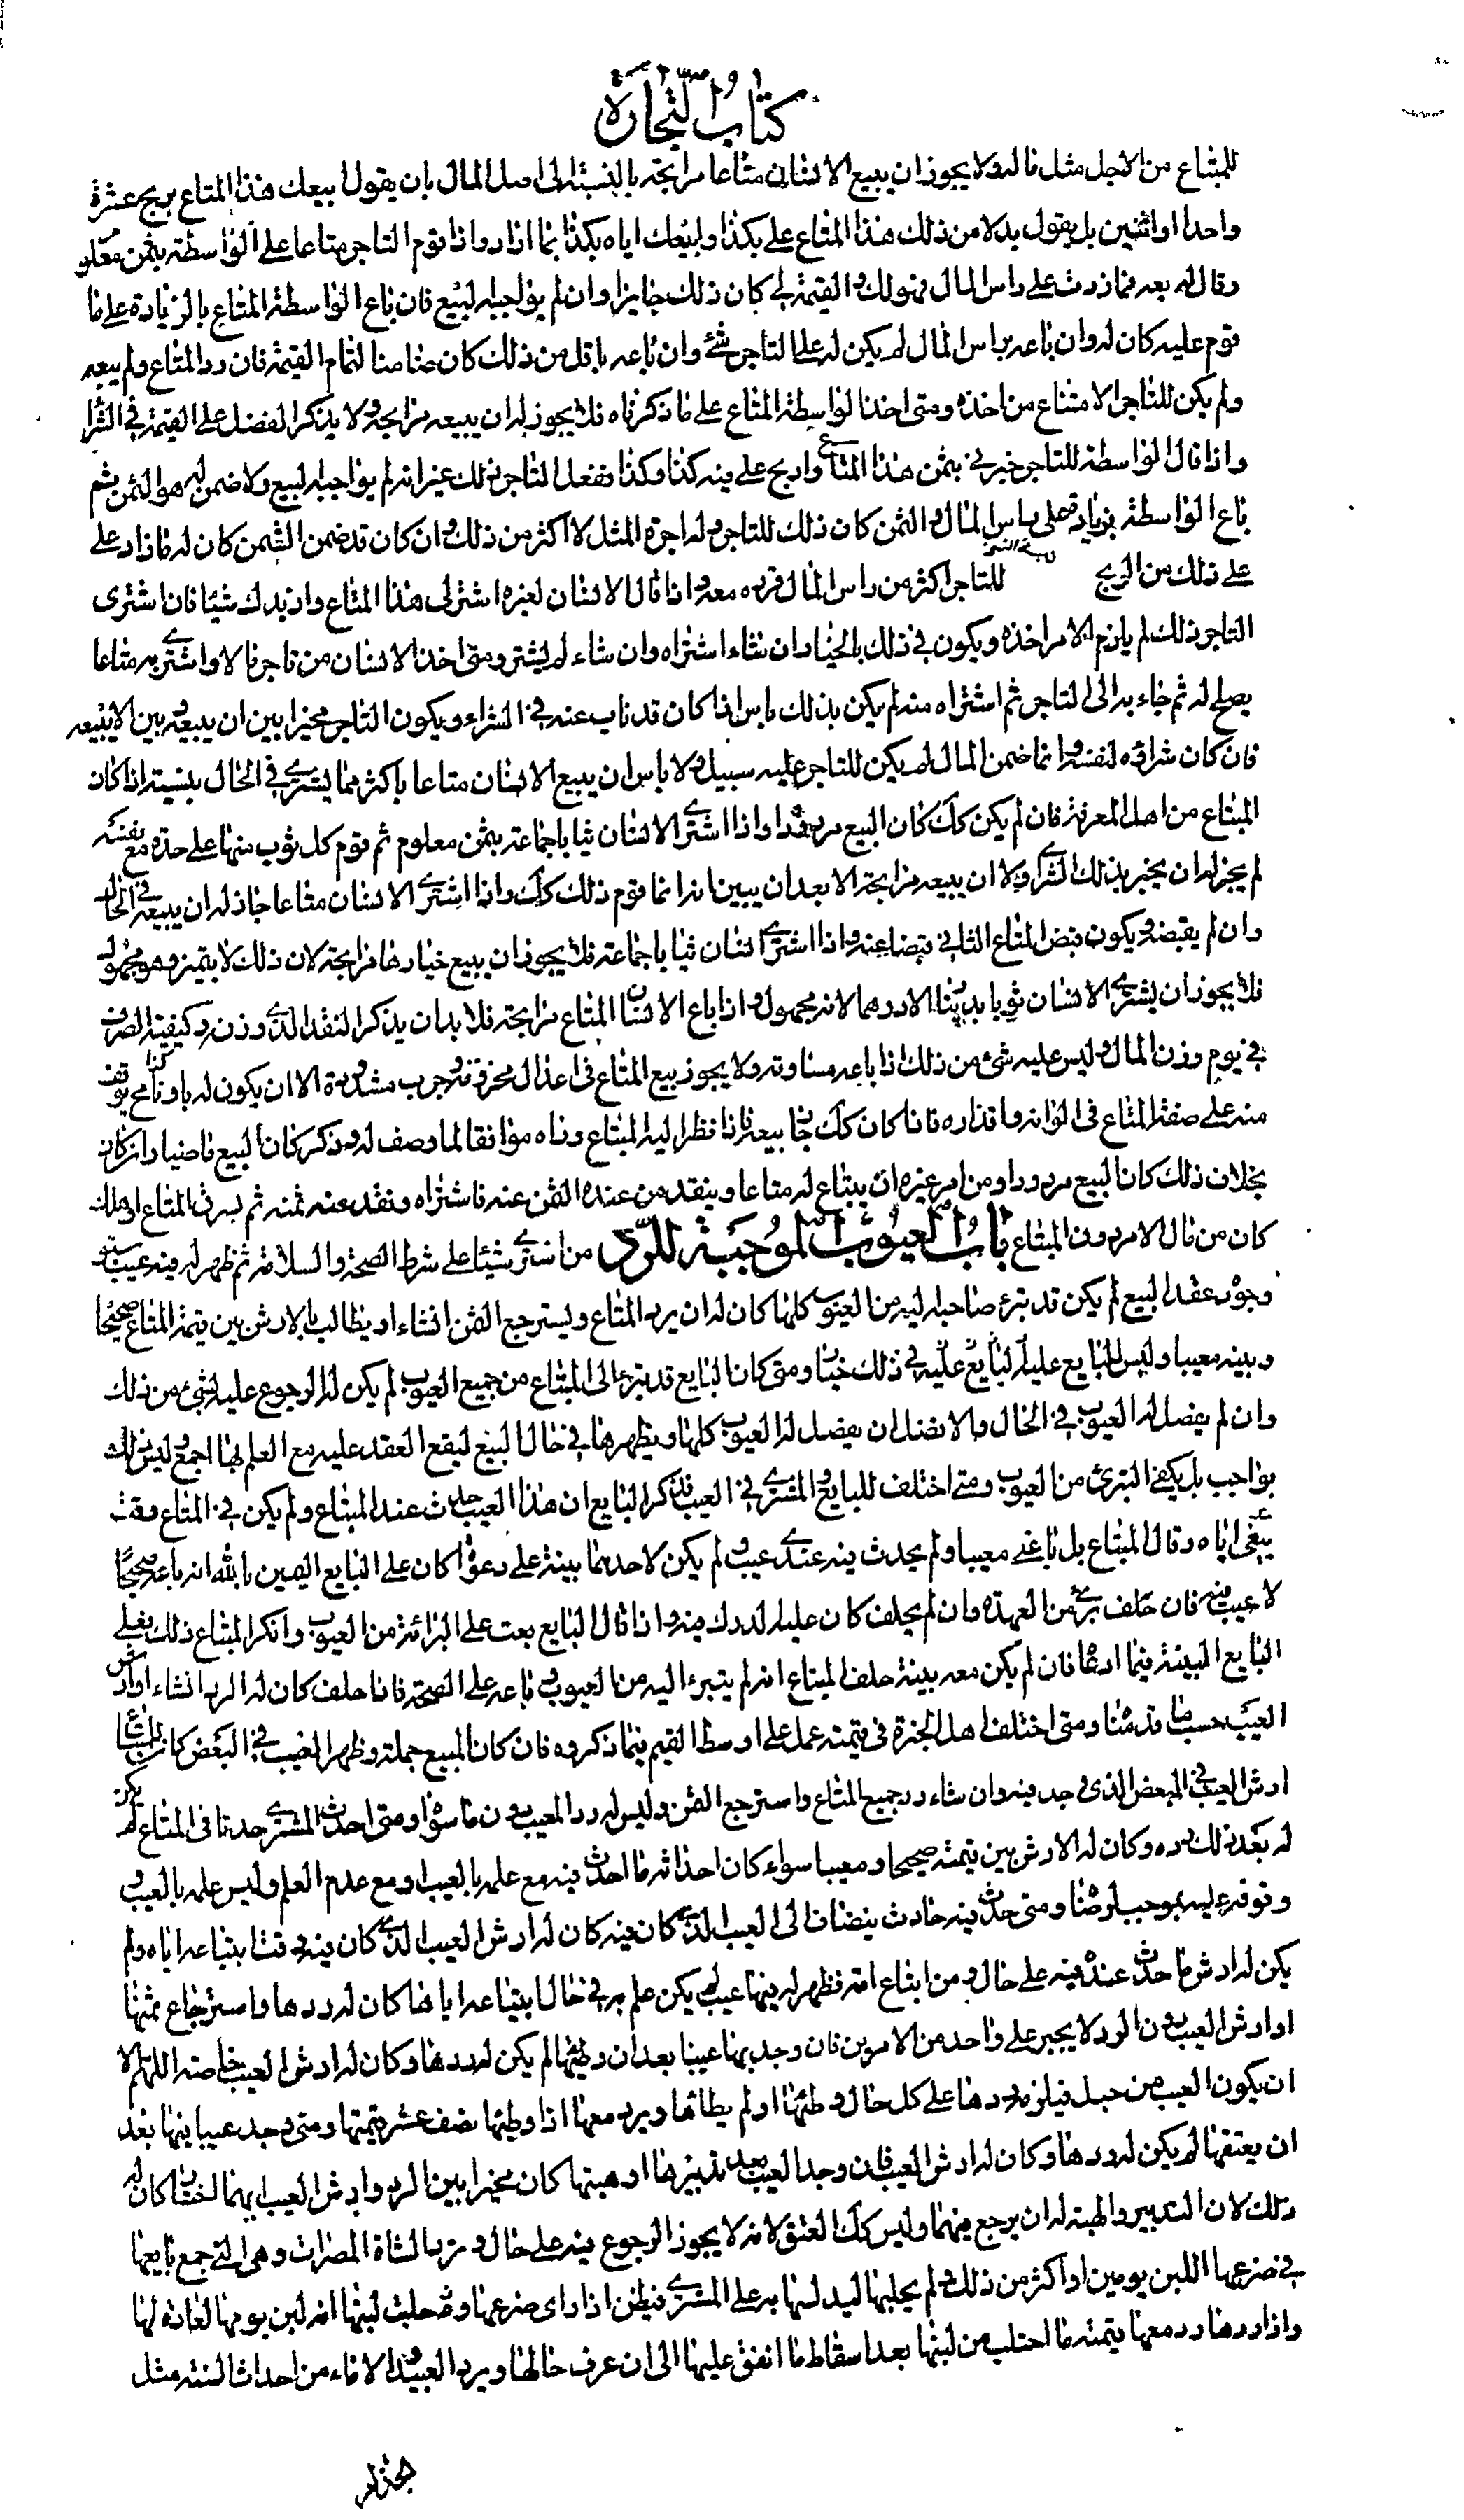 كتاب التجارة
للمبتاع من الاجل مثل ماله ولا يجوز ان يبيع الانسان متاعا مرابحة بالنسبة الى اصل المال بان يقول ابيعك هذا المتاع بربح عشرة
واحدا او اثنين بل يقول بدلا من ذلك هذا المتاع على بكذا وابيعك اياه بكذا بما اراد واذا قوم التاجر متاعا على الواسطة بثمن معلوم
وقال له بعه فما زدت على راس المال فهو لك والقيمة لى كان ذلك جايزا وان لم يواجبه البيع فان باع الواسطة المتاع بالزيادة على ما
قوم عليه كان له وان باعه براس المال لم يكن له على التاجر شئ وان باعه باقل من ذلك كان ضامنا لتمام القيمة فان رد المتاع ولم يبعه
ولم يكن للتاجر الامتناع من اخذه ومتى اخذ الواسطة المتاع على ما ذكرناه فلا يجوز له ان يبيعه مرابحة ولا يذكر الفضل على القيمة في الشرا
واذا قال الواسطة للتاجر خبرنى بثمن هذا المتاع واربح على فيه كذا وكذا ففعل التاجر ذلك غير انه لم يواجبه البيع ولا ضمن له هو الثمن ثم
باع الواسطة بزيادة على راس المال والثمن كان ذلك للتاجر وله اجرة المثل لا اكثر من ذلك وان كان قد ضمن الثمن كان له ما زاد على
على ذلك من الربح للتاجر اكثر من راس المال قرره معه واذا قال الانسان لغيره اشتر لى هذا المتاع وازيدك شيئا فان اشترى
التاجر ذلك لم يلزم الامر اخذه ويكون في ذلك بالخيار ان شاء اشتراه وان شاء لم يشتر ومتى اخذ الانسان من تاجر مالا واشترى به متاعا
يصلح له ثم جاء به الى التاجر ثم اشتراه منه لم يكن بذلك باس اذا كان قد ناب عنه في الشراء ويكون التاجر مخيرا بين ان يبيعه وبين الا يبيعه
فان كان شراؤه لنفسه وانما ضمن المال لم يكن للتاجر عليه سبيل ولا باس ان يبيع الانسان متاعا باكثر مما يشترى في الحال بنسية اذا كان
المبتاع من اهل المعرفة فان لم يكن كك كان البيع مردودا واذا اشترى الانسان ثيابا جماعة بثمن معلوم ثم قوم كل ثوب منها على حدة مع نفسه
لم يجز له ان يخبر بذلك الشرا ولا ان يبيعه مرابحة الا بعد ان يبين انه انما قوم ذلك كك واذا اشترى الانسان متاعا جاز له ان يبيعه في الحال
وان لم يقبضه ويكون قبض المتاع الثانى قبضا عنه واذا اشترى انسان ثيابا جماعة فلا يجوز ان يبيع خيارها مرابحة لان ذلك لا يتميز وهو مجهول
فلا يجوز ان يشترى الانسان ثوبا بدينار الا درهما لانه مجهول واذا باع الانسان المتاع مرابحة فلا بد ان يذكر النقد الذى وزن وكيفية الصرف
في يوم وزن المال وليس عليه شئ من ذلك اذا باعه مساومة ولا يجوز بيع المتاع فى اعدال مخزومة وجرب مشدودة الا ان يكون له بارنامج يوقف
منه على صفة المتاع فى الوانه واقداره فاذا كان كك جاز بيعه فاذا نظر اليه المبتاع وراه موافقا لما وصف له وذكر كان البيع ماضيا وان كان
بخلاف ذلك كان البيع مردودا ومن امر غيره ان يبتاع له متاعا وينقد من عنده الثمن عنه فاشتراه ونقد عنه ثمنه ثم سرق المتاع او هلك
كان من مال الامر دون المبتاع باب العيوب الموجبة للرد من اشترى شيئا على شرط الصحة والسلامة ثم ظهر له فيه عيب سبق
وجوده عقد البيع لم يكن قد تبرء صاحبه اليه من العيوب كلها كان له ان يرد المتاع ويسترجع الثمن ان شاء او يطالب بالارش بين قيمة المتاع صحيحا
وبينه معيبا وليس للبايع عليه في ذلك خيار ومتى كان البايع قد تبرء الى المبتاع من جميع العيوب لم يكن له الرجوع عليه بشئ من ذلك
وان لم يفصل له العيوب في الحال والافضل ان يفصل له العيوب كلها ويظهرها في حال البيع ليقع العقد عليه مع العلم بها اجمع وليس ذلك
بواجب بل يكفى التبرئ من العيوب ومتى اختلف البايع والمشترى في العيب فذكر البايع ان هذا العيب حدث عند المبتاع ولم يكن في المتاع وقت
بيعى اياه وقال المبتاع بل باعنى معيبا ولم يحدث فيه عندى عيب ولم يكن لاحدهما بينة على دعواه كان على البايع اليمين بالله انه باعه صحيحا
لا عيب فيه فان حلف برئ من العهدة وان لم يحلف كان عليه الدرك فيه واذا قال البايع بعت على البرائة من العيوب وانكر المبتاع ذلك فعلى
البايع البينة فيما ادعاه فان لم يكن معه بينة حلف المبتاع انه لم يتبرء اليه من العيوب وباعه على الصحة فاذا حلف كان له الرد ان شاء او ارش
العيب حسب ما قدمناه ومتى اختلف اهل الخبرة فى قيمته عمل على اوسط القيم فيما ذكروه فان كان المبيع جملة وظهر العيب في البعض كان للمبتاع
ارش العيب في البعض الذى وجد فيه وان شاء رد جميع المتاع واسترجع الثمن وليس له رد المعيب دون ما سواه ومتى احدث المشترى حدثا فى المتاع لم يكن
له بعد ذلك رده وكان له الارش بين قيمته صحيحا ومعيبا سواء كان احداثه ما احدث فيه مع علمه بالعيب او مع عدم العلم وليس علمه بالعيب و
وقوفه عليه بموجب لرضاه ومتى حدث فيه حادث ينضاف الى العيب الذى كان فيه كان له ارش العيب الذى كان فيه وقت ابتياعه اياه ولم
يكن له ارش ما حدث عنده فيه على حال ومن ابتاع امة فظهر له فيها عيب لم يكن علم به في حال ابتياعه اياها كان له ردها واسترجاع ثمنها
او ارش العيب دون الرد لا يجبر على واحد من الامرين فان وجد بها عيبا بعد ان وطئها لم يكن له ردها وكان له ارش العيب خاصة اللهم الا
ان يكون العيب من حبل فيلزمه ردها على كل حال وطئها او لم يطأها ويرد معها اذا وطئها نصف عشر قيمتها ومتى وجد عيبا فيها بعد
ان يعتقها لم يكن له ردها وكان له ارش العيب فان وجد العيب بعد تدبيرها او هبتها كان مخيرا بين الرد وارش العيب ايهما اختار كان له
ذلك لان التدبير والهبة له ان يرجع فيهما وليس كك العتق لانه لا يجوز الرجوع فيه على حال وترد الشاة المصرات وهى التى جمع بايعها
في ضرعها اللبن يومين او اكثر من ذلك ولم يحلبها ليدلسها به على المشترى فيظن اذا راى ضرعها وحلب لبنها انه لبن يومها لعادة لها
واذا ردها رد معها قيمة ما احتلب من لبنها بعد اسقاط ما انفق عليها الى ان عرف حالها ويرد العبيد والاماء من احداث السنة مثل